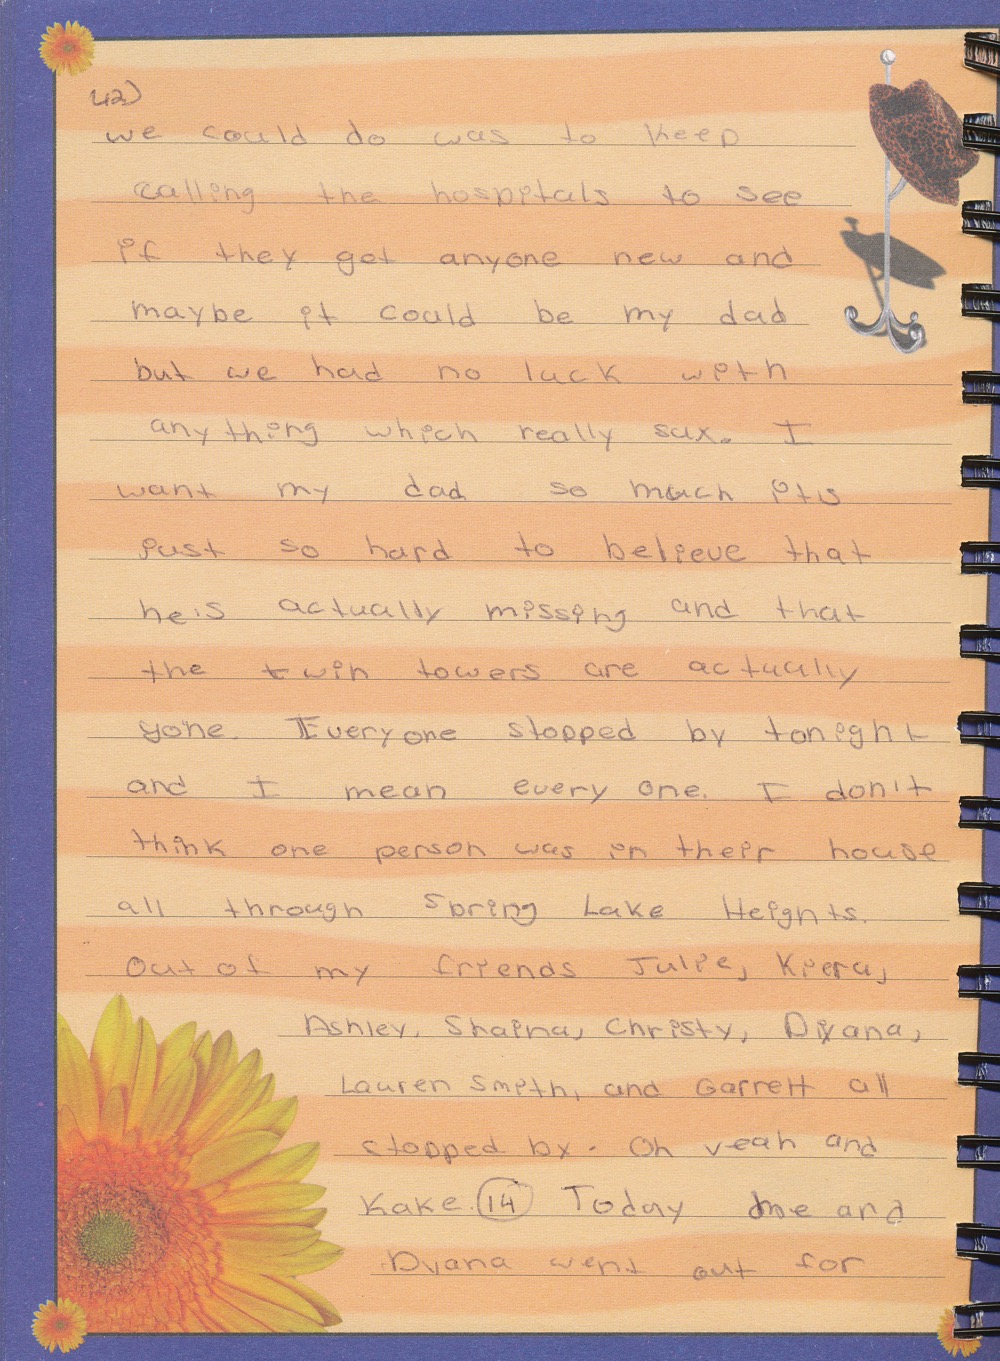 42)
we could do was to keep
calling the hospitals to see
if they got anyone new and
maybe it could be my dad
but we had no luck with
anything which really sux. I
want my dad so much its
just so hard to believe that
he is actually missing and that
the twin towers are actually
gone. Everyone stopped by tonight
and I mean every one. I don't
think one person was in their house
all through Spring Lake Heights.
Out of my friends Julie, Kiera,
Ashley, Shaina, Christy, Dyana,
Lauren Smith, and Garrett all
stopped by. Oh yeah and
Kake. 14 Today me and
Dyana went out for